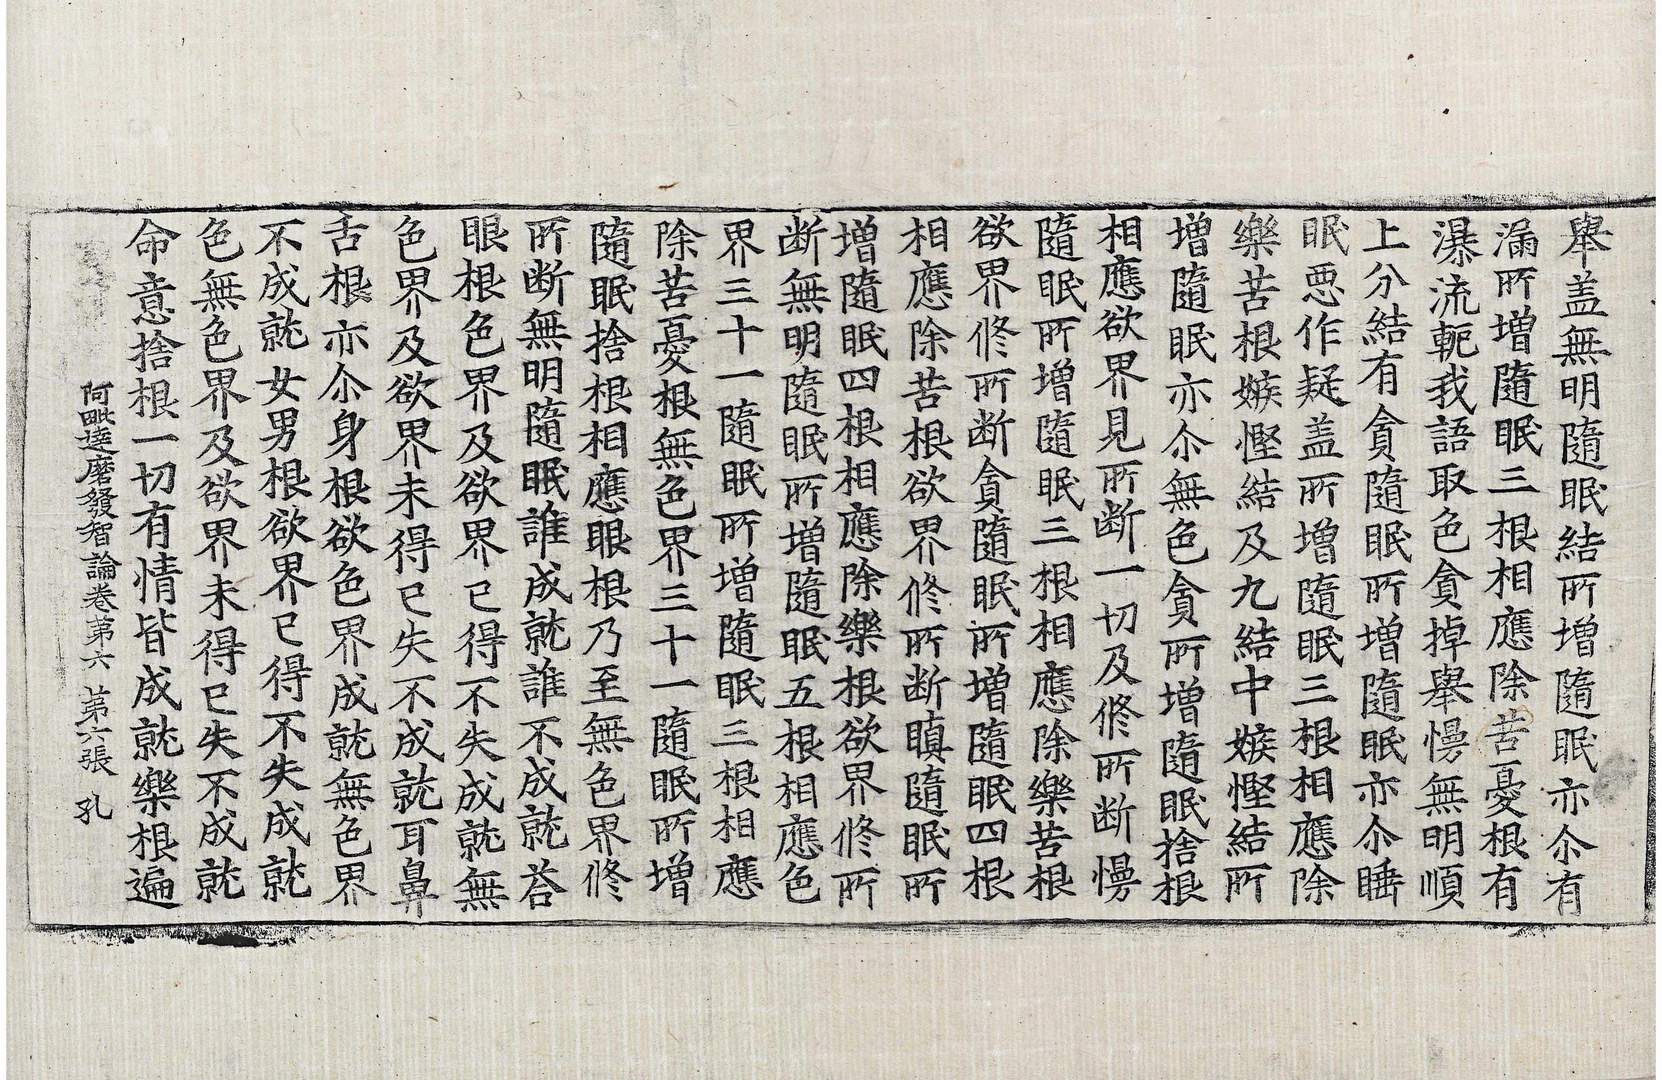 舉盖無明隨眠結所增隨眠亦尒有
漏所增隨眠三根相應除苦憂根有
瀑流軛我語取色貪掉舉慢無明順
上分結有貪隨眠所增隨眠亦尒睡
眠惡作疑盖所增隨眠三根相應除
樂苦根嫉慳結及九結中嫉慳結所
增隨眠亦尒無色貪所增隨眠捨根
相應欲界見所断一切及修所断慢
隨眠所增隨眠三根相應除樂苦根
欲界修所断貪隨眠所增隨眠四根
相應除苦根欲界修所断瞋隨眠所
增隨眠四根相應除樂根欲界修所
断無明隨眠所增隨眠五根相應色
界三十一隨眠所增隨眠三根相應
除苦憂根無色界三十一隨眠所增
隨眠捨根相應眼根乃至無色界修
所断無明隨眠誰成就誰不成就荅
眼根色界及欲界已得不失成就無
色界及欲界未得已失不成就耳鼻
舌根亦尒身根欲色界成就無色界
不成就女男根欲界已得不失成就
色無色界及欲界未得已失不成就
命意捨根一切有情皆成就樂根遍
阿毗達磨發智論卷苐六 苐六張 孔